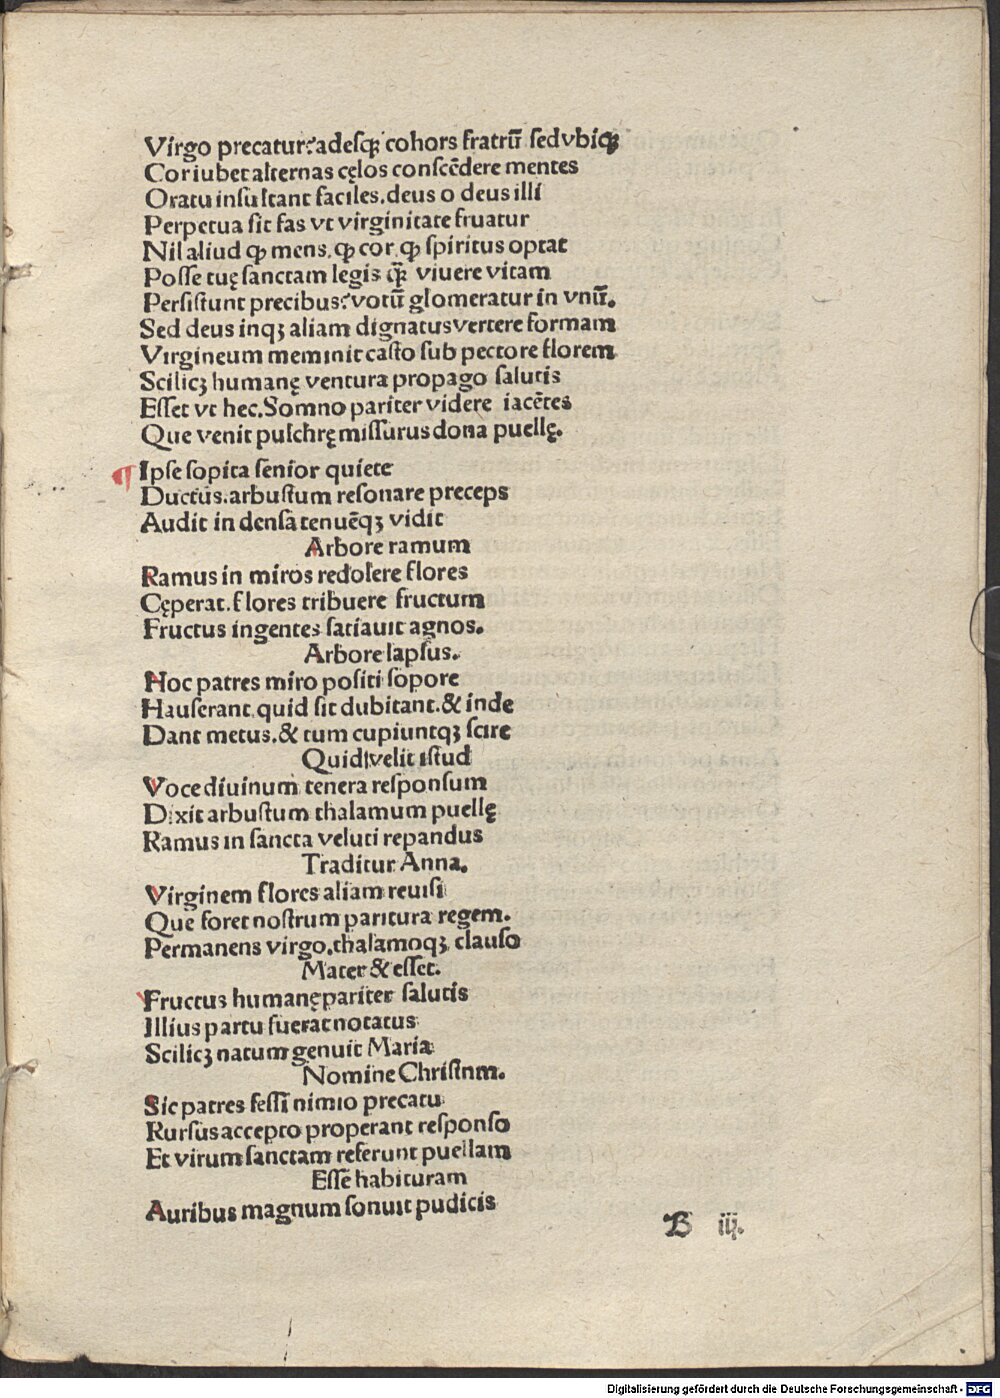 Virgo precatur:adesqꝫ cohors fratrū sedvbiqꝫ
Cor iubet alternas cęlos conscēdere mentes
Oratu insultant faciles.deus o deus illi
Perpetua sit fas vt virginitate fruatur
Nil aliud qꝫ mens.qꝫ cor.qꝫ spiritus optat
Posse tuę sanctam legis q̄ꝫ viuere vitam
Persistunt precibus:votū glomeratur in vnū.
Sed deus inqꝫ aliam dignatus vertere formam
Virgineum meminit casto sub pectore florem
Scilicꝫ humanę ventura propago salutis
Esset vt hec.Somno pariter videre iacētes
Que venit pulchrę missurus dona puellę.
¶ Ipse sopita senior quiete
Ductus:arbustum resonare preceps
Audit in densa tenuēqꝫ vidit
Arbore ramum
Ramus in miros redolere flores
Cęperat.flores tribuere fructum
Fructus ingentes satiauit agnos.
Arbore lapsus.
Hoc patres miro positi sopore
Hauserant.quid sit dubitant.& inde
Dant metus.& tum cupiuntqꝫ scire
Quid velit istud
Voce diuinum tenera responsum
Dixit arbustum thalamum puellę
Ramus in sancta veluti repandus
Traditur Anna.
Virginem flores aliam reuisi
Que foret nostrum paritura regem.
Permanens virgo.thalamoqꝫ clauso
Mater & esset.
Fructus humanę pariter salutis
Illius partu fuerat notatus
Scilicꝫ natum genuit Maria
Nomine Christnm.
Sic patres fessi nimio precatu
Rursus accepto properant responso
Et virum sanctam referunt puellam
Esse habituram
Auribus magnum sonuit pudicis
B iij.
Digitalisierung gefördert durch die Deutsche Forschungsgemeinschaft - DFG